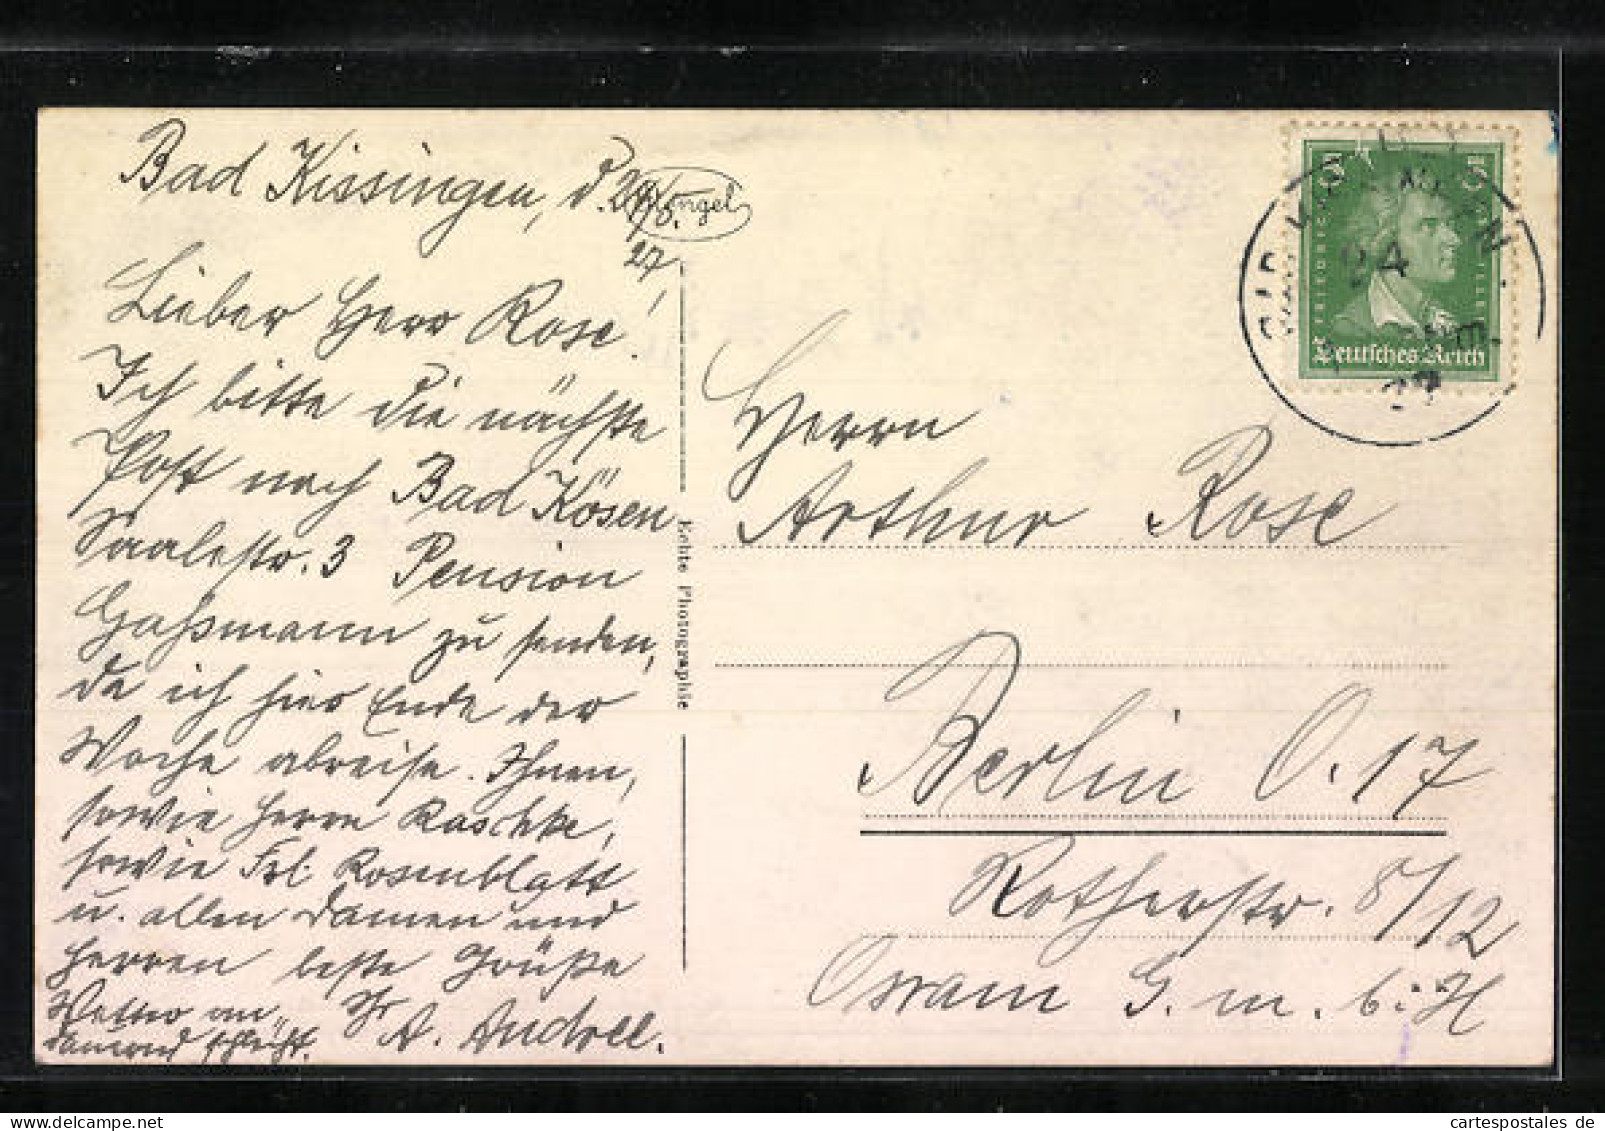 Bad Kissingen, d. 24/8.
27
Lieber Herr Rose!
Ich bitte die nächste
Post nach Bad Kösen
Saalestr. 3 Pension
Gaßmann zu senden,
da ich hier Ende der
Woche abreise. Ihnen,
sowie Herrn Raschke,
sowie Frl. Rosenblatt
u. allen Damen und
Herren beste Grüße
Wetter an Ihr
dauernd schlecht. A. Andree.
Echte Photographie
5 5
FRIEDRICH
Deutsches Reich
24
27
Herrn
Arthur Rose
Berlin O. 17
Rotherstr. 8/12
Osram G. m. b. H
www.cartespostales.de